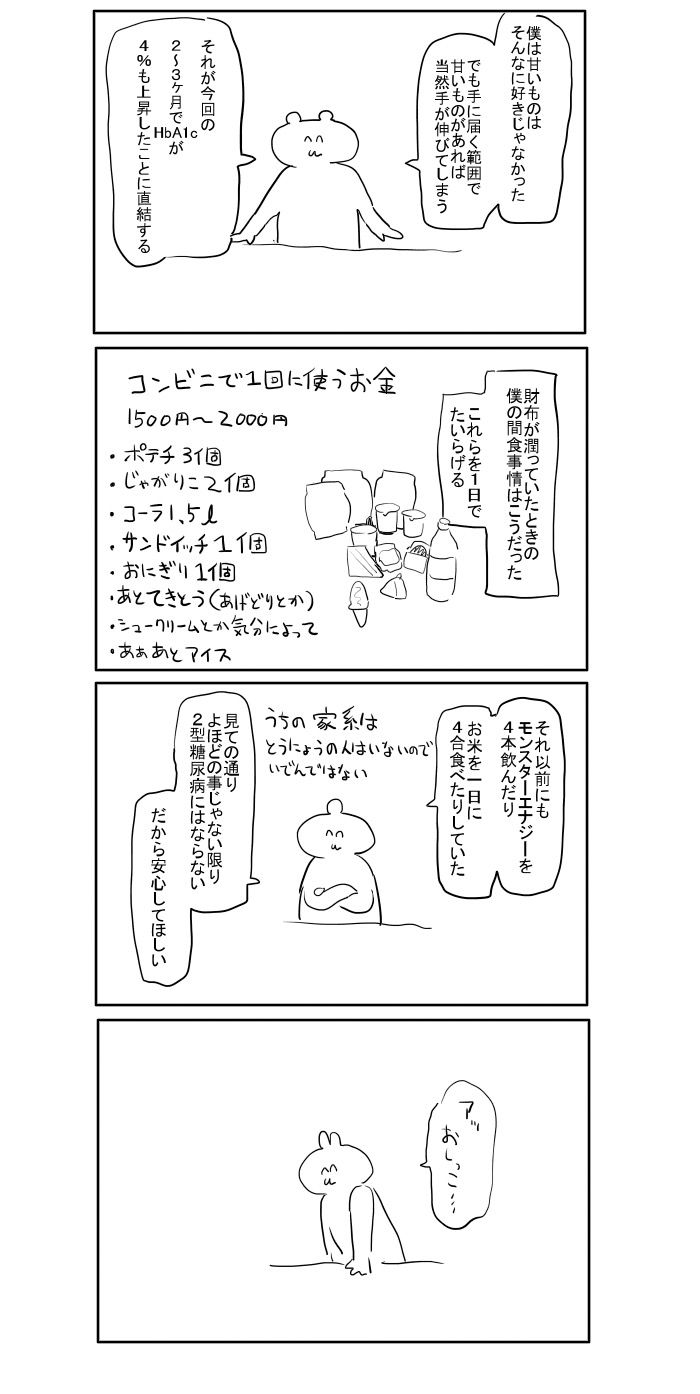 僕は甘いものは
そんなに好きじゃなかった
でも手に届く範囲で
甘いものがあれば
当然手が伸びてしまう
それが今回の
2~3ヶ月で
HbA1cが
4%も上昇したことに直結する
財布が潤っていたときの
僕の間食事情はこうだった
これらを1日で
たいらげる
コンビニで1回に使うお金
1500円~2000円
・ポテチ3個
・じゃがりこ2個
・コーラ1,5l
・サンドイッチ1個
・おにぎり1個
・あとてきとう(あげどりとか)
・シュークリームとか気分によって
・あぁあとアイス
それ以前にも
モンスターエナジーを
4本飲んだり
お米を一日に
4合食べたりしていた
うちの家系は
とうにょうの人はいないので
いでんではない
見ての通り
よほどの事じゃない限り
2型糖尿病にはならない
だから安心してほしい
アッ
おしっこ…